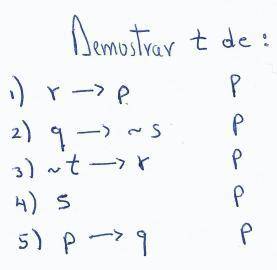 Demostrar t de:
1) r → p P
2) q → ~ s P
3) ~t → r P
4) s P
5) p → q P